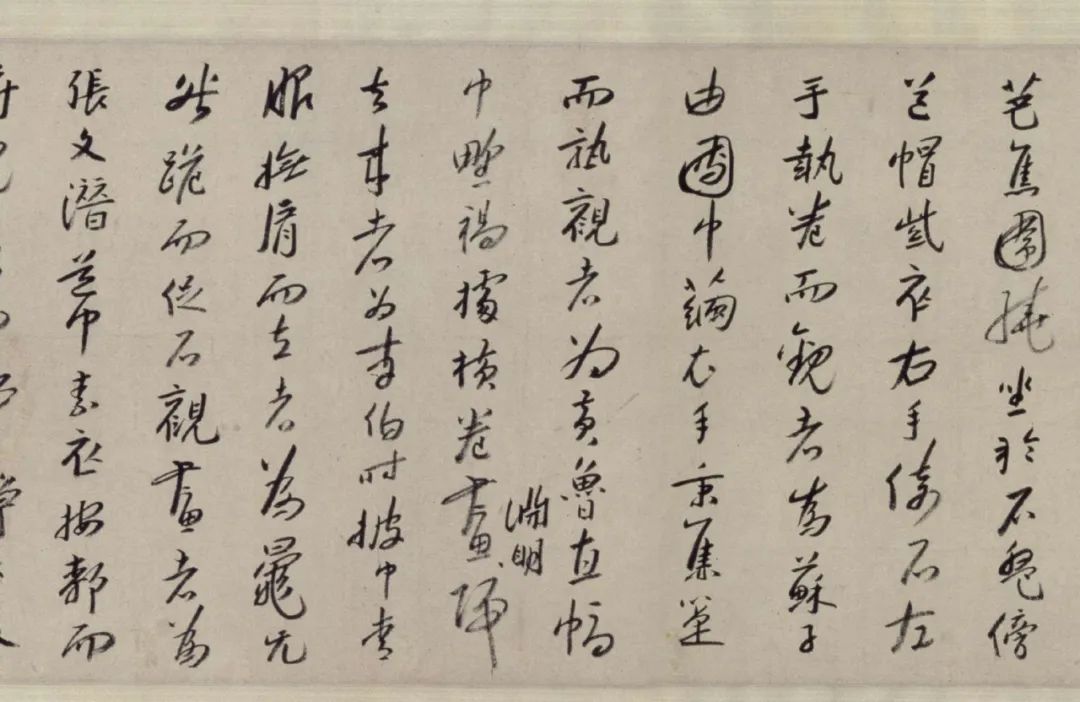 芭蕉團繞坐於石盤傍
道帽紫衣右手倚石左
手執卷而觀者為蘇子
由團巾繭衣手秉蕉箑
而孰觀者為黃魯直幅
巾野褐據橫卷畫淵明歸
去來者為李伯時披巾青
服撫肩而立者為晁无
咎跪而促石觀畫者為
張文潛道巾素衣按郀而